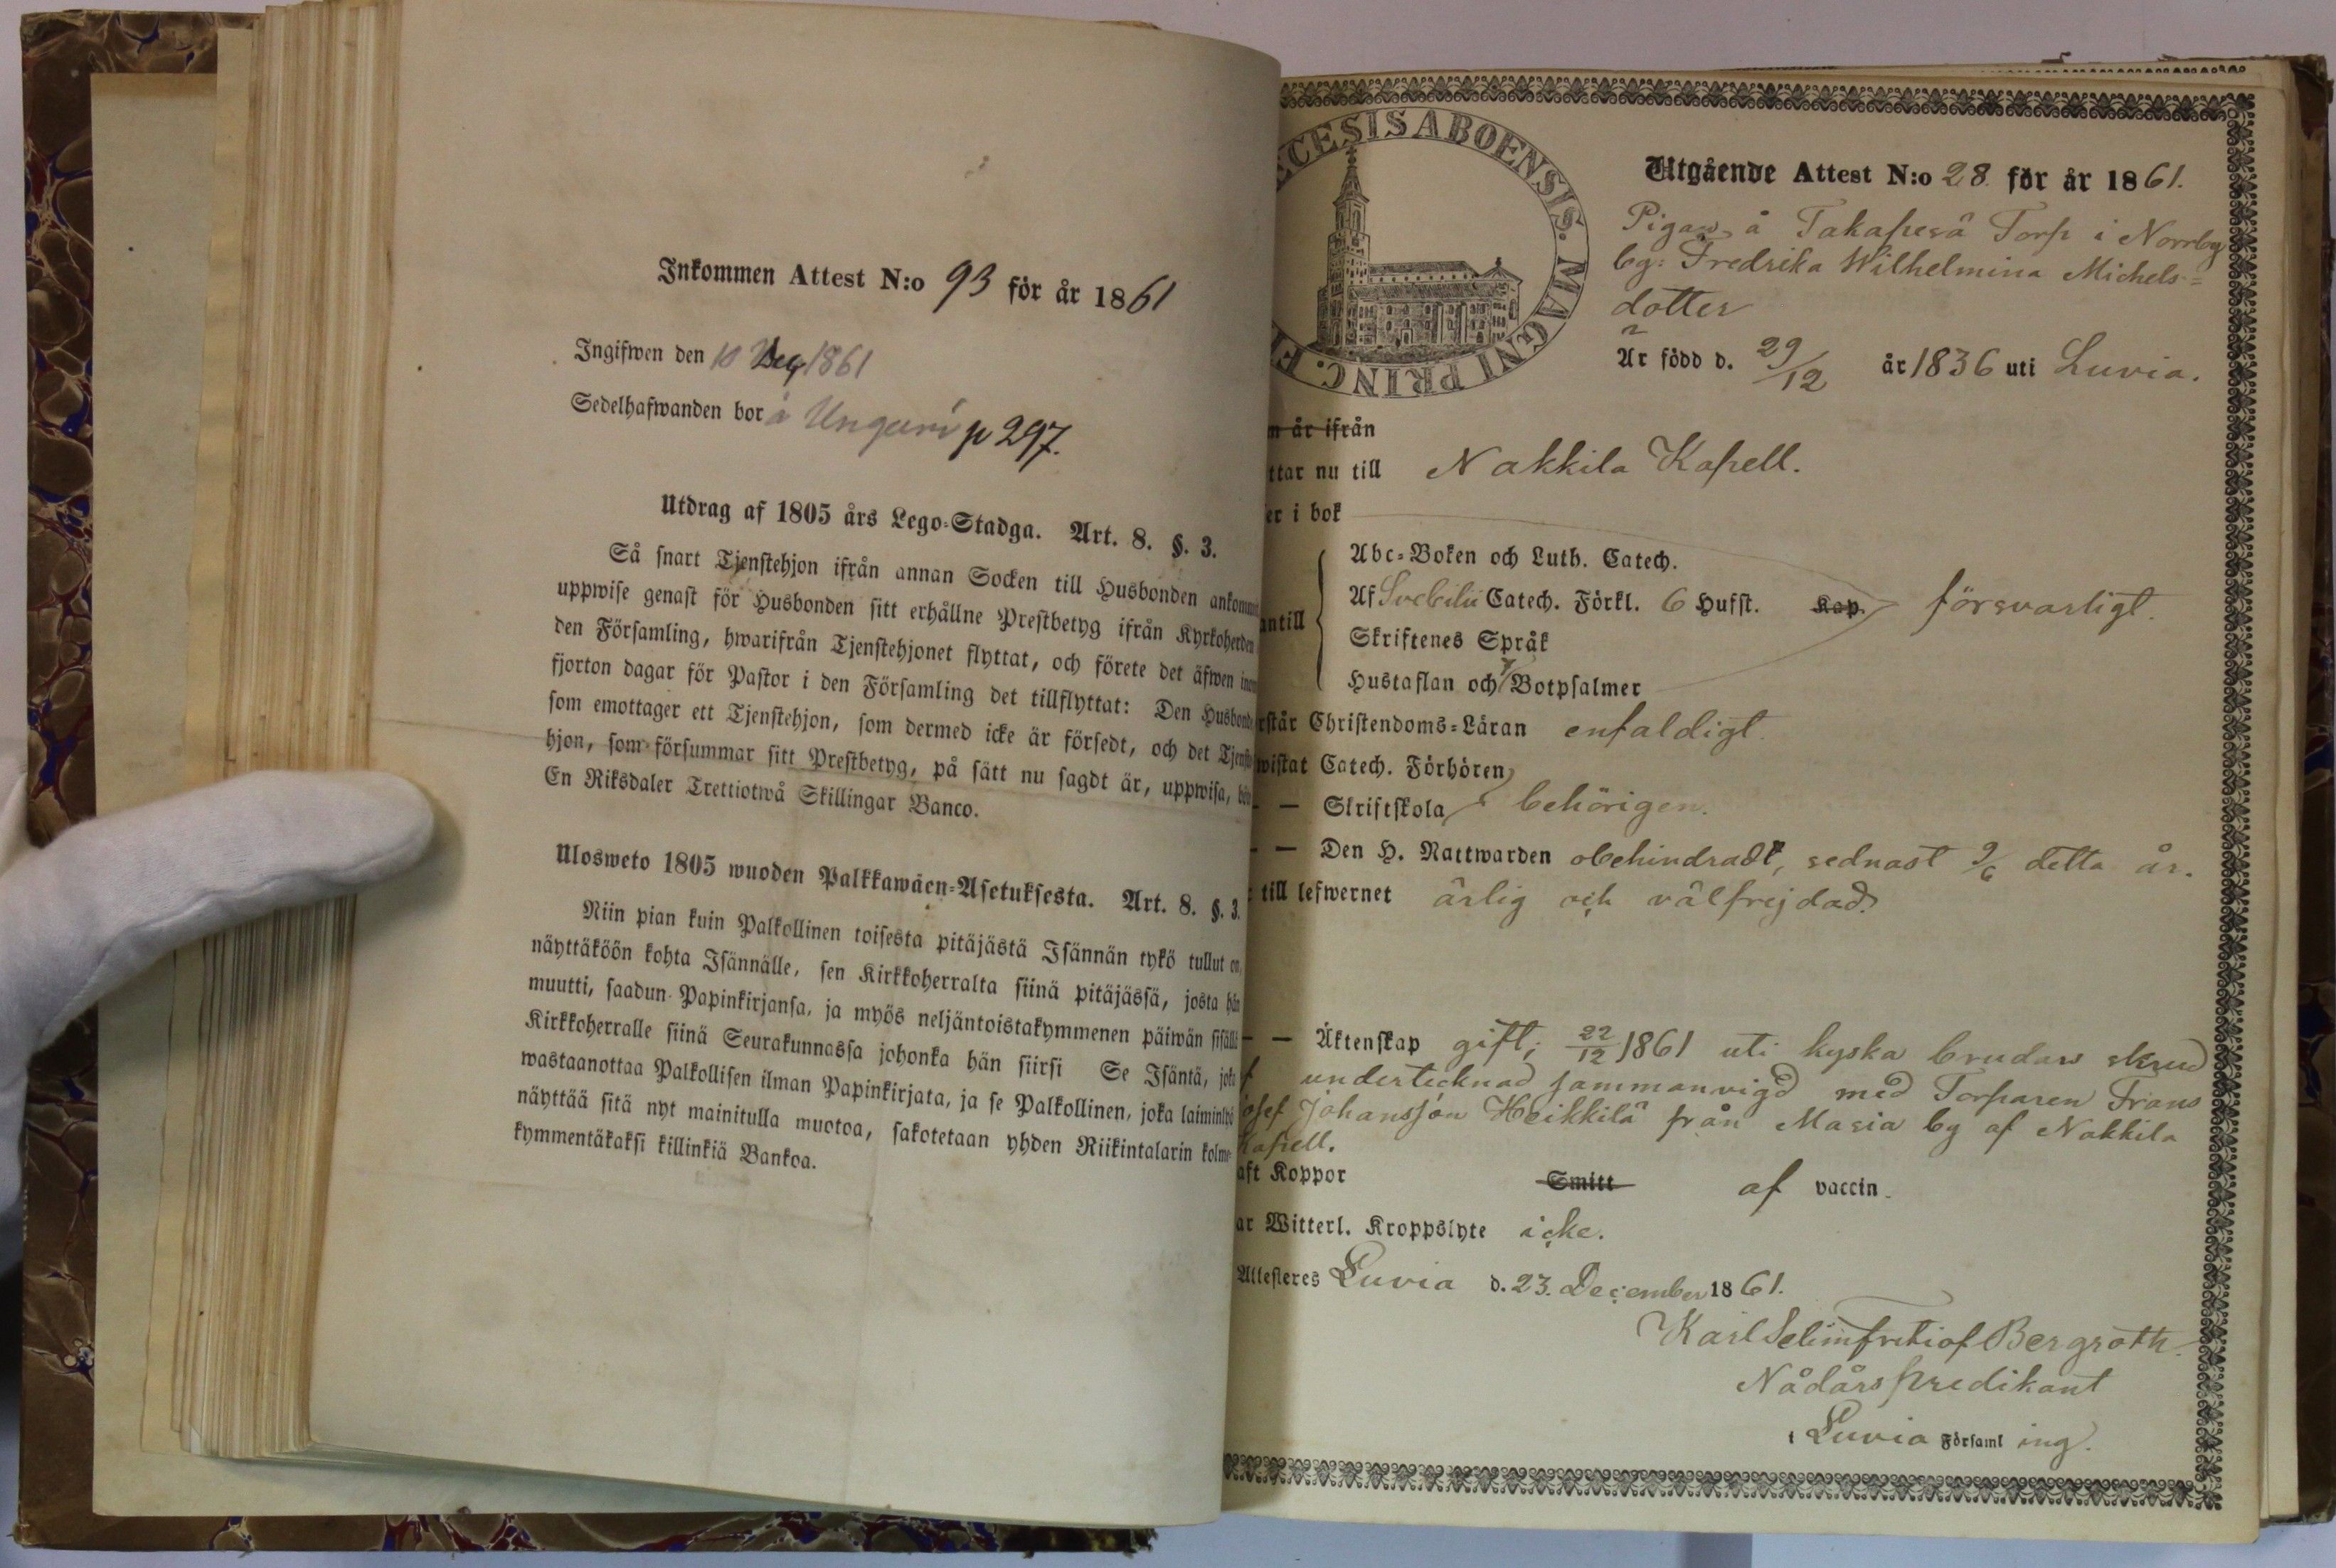 Inkommen Attest N:o 93 för år 1861
Ingifwen den 10 1861
Sedelhafwanden bor å p 297.
Utdrag af 1805 års Lego-Stadga. Art. 8. §. 3.
Så snart Tjenstehjon ifrån annan Socken till Husbonden
uppwise genast för Husbonden sitt erhållne Prestbetyg ifrån Kyrkoherden
den Församling, hwarifrån Tjenstehjonet flyttat, och förete det äfwen
fjorton dagar för Pastor i den Församling det tillflyttat: Den
som emottager ett Tjenstehjon, som dermed icke är försedt, och det
hjon, som försummar sitt Prestbetyg, på sätt nu sagdt är, uppwisa,
En Riksdaler Trettiotwå Skillingar Banco.
Ulosweto 1805 wuoden Palkkawäen-Asetuksesta. Art. 8. §. 3.
Niin pian kuin Palkollinen toisesta pitäjästä Isännän tykö tullut on,
näyttäköön kohta Isännälle, sen Kirkkoherralta siinä pitäjässä, josta hän
muutti, saadun Papinkirjansa, ja myös neljäntoistakymmenen päiwän
Kirkkoherralle siinä Seurakunnassa johonka hän siirsi Se Isäntä, joka
wastaanottaa Palkollisen ilman Papinkirjata, ja se Palkollinen, joka
näyttää sitä nyt mainitulla muotoa, sakotetaan yhden Riikintalarin kolme-
kymmentäkaksi killinkiä Bankoa.
CESIS ABOENSIS. MAGNI PRINC. FI
Utgående Attest N:o 28 för år 1861.
Pigan å Takapesä Torp i Norrby
by: Fredrika Wilhelmina Michels=
dotter
Är född d. 29/12 år 1836 uti Luvia.
n år ifrån
ttar nu till Nakkila Kapell.
er i bok
Abc-Boken och Luth. Catech.
antill Af Svebilii Catech. Förkl. 6 Hufst. Kap. försvarligt.
Skriftenes Språk
Hustaflan och 7 Botpsalmer
rstår Christendoms-Läran enfaldigt.
wistat Catech. Förhören
— Skriftskola behörigen.
— — Den H. Nattwarden obehindradt, sednast 9/6 detta år.
till lefwernet ärlig och välfrejdad.
— — Äktenskap gift; 22/12 1861 uti kyska brudars skrud
f undertecknad sammanvigd med Torparen Frans
Josef Johansson Heikkilä från Masia by af Nakkila
Kapell.
aft Koppor Smitt af vaccin.
ar Witterl. Kroppslyte icke.
Attesteres Luvia d. 23. December 1861.
Karl Selim Fritiof Bergroth.
Nådårspredikant
i Luvia Församling.